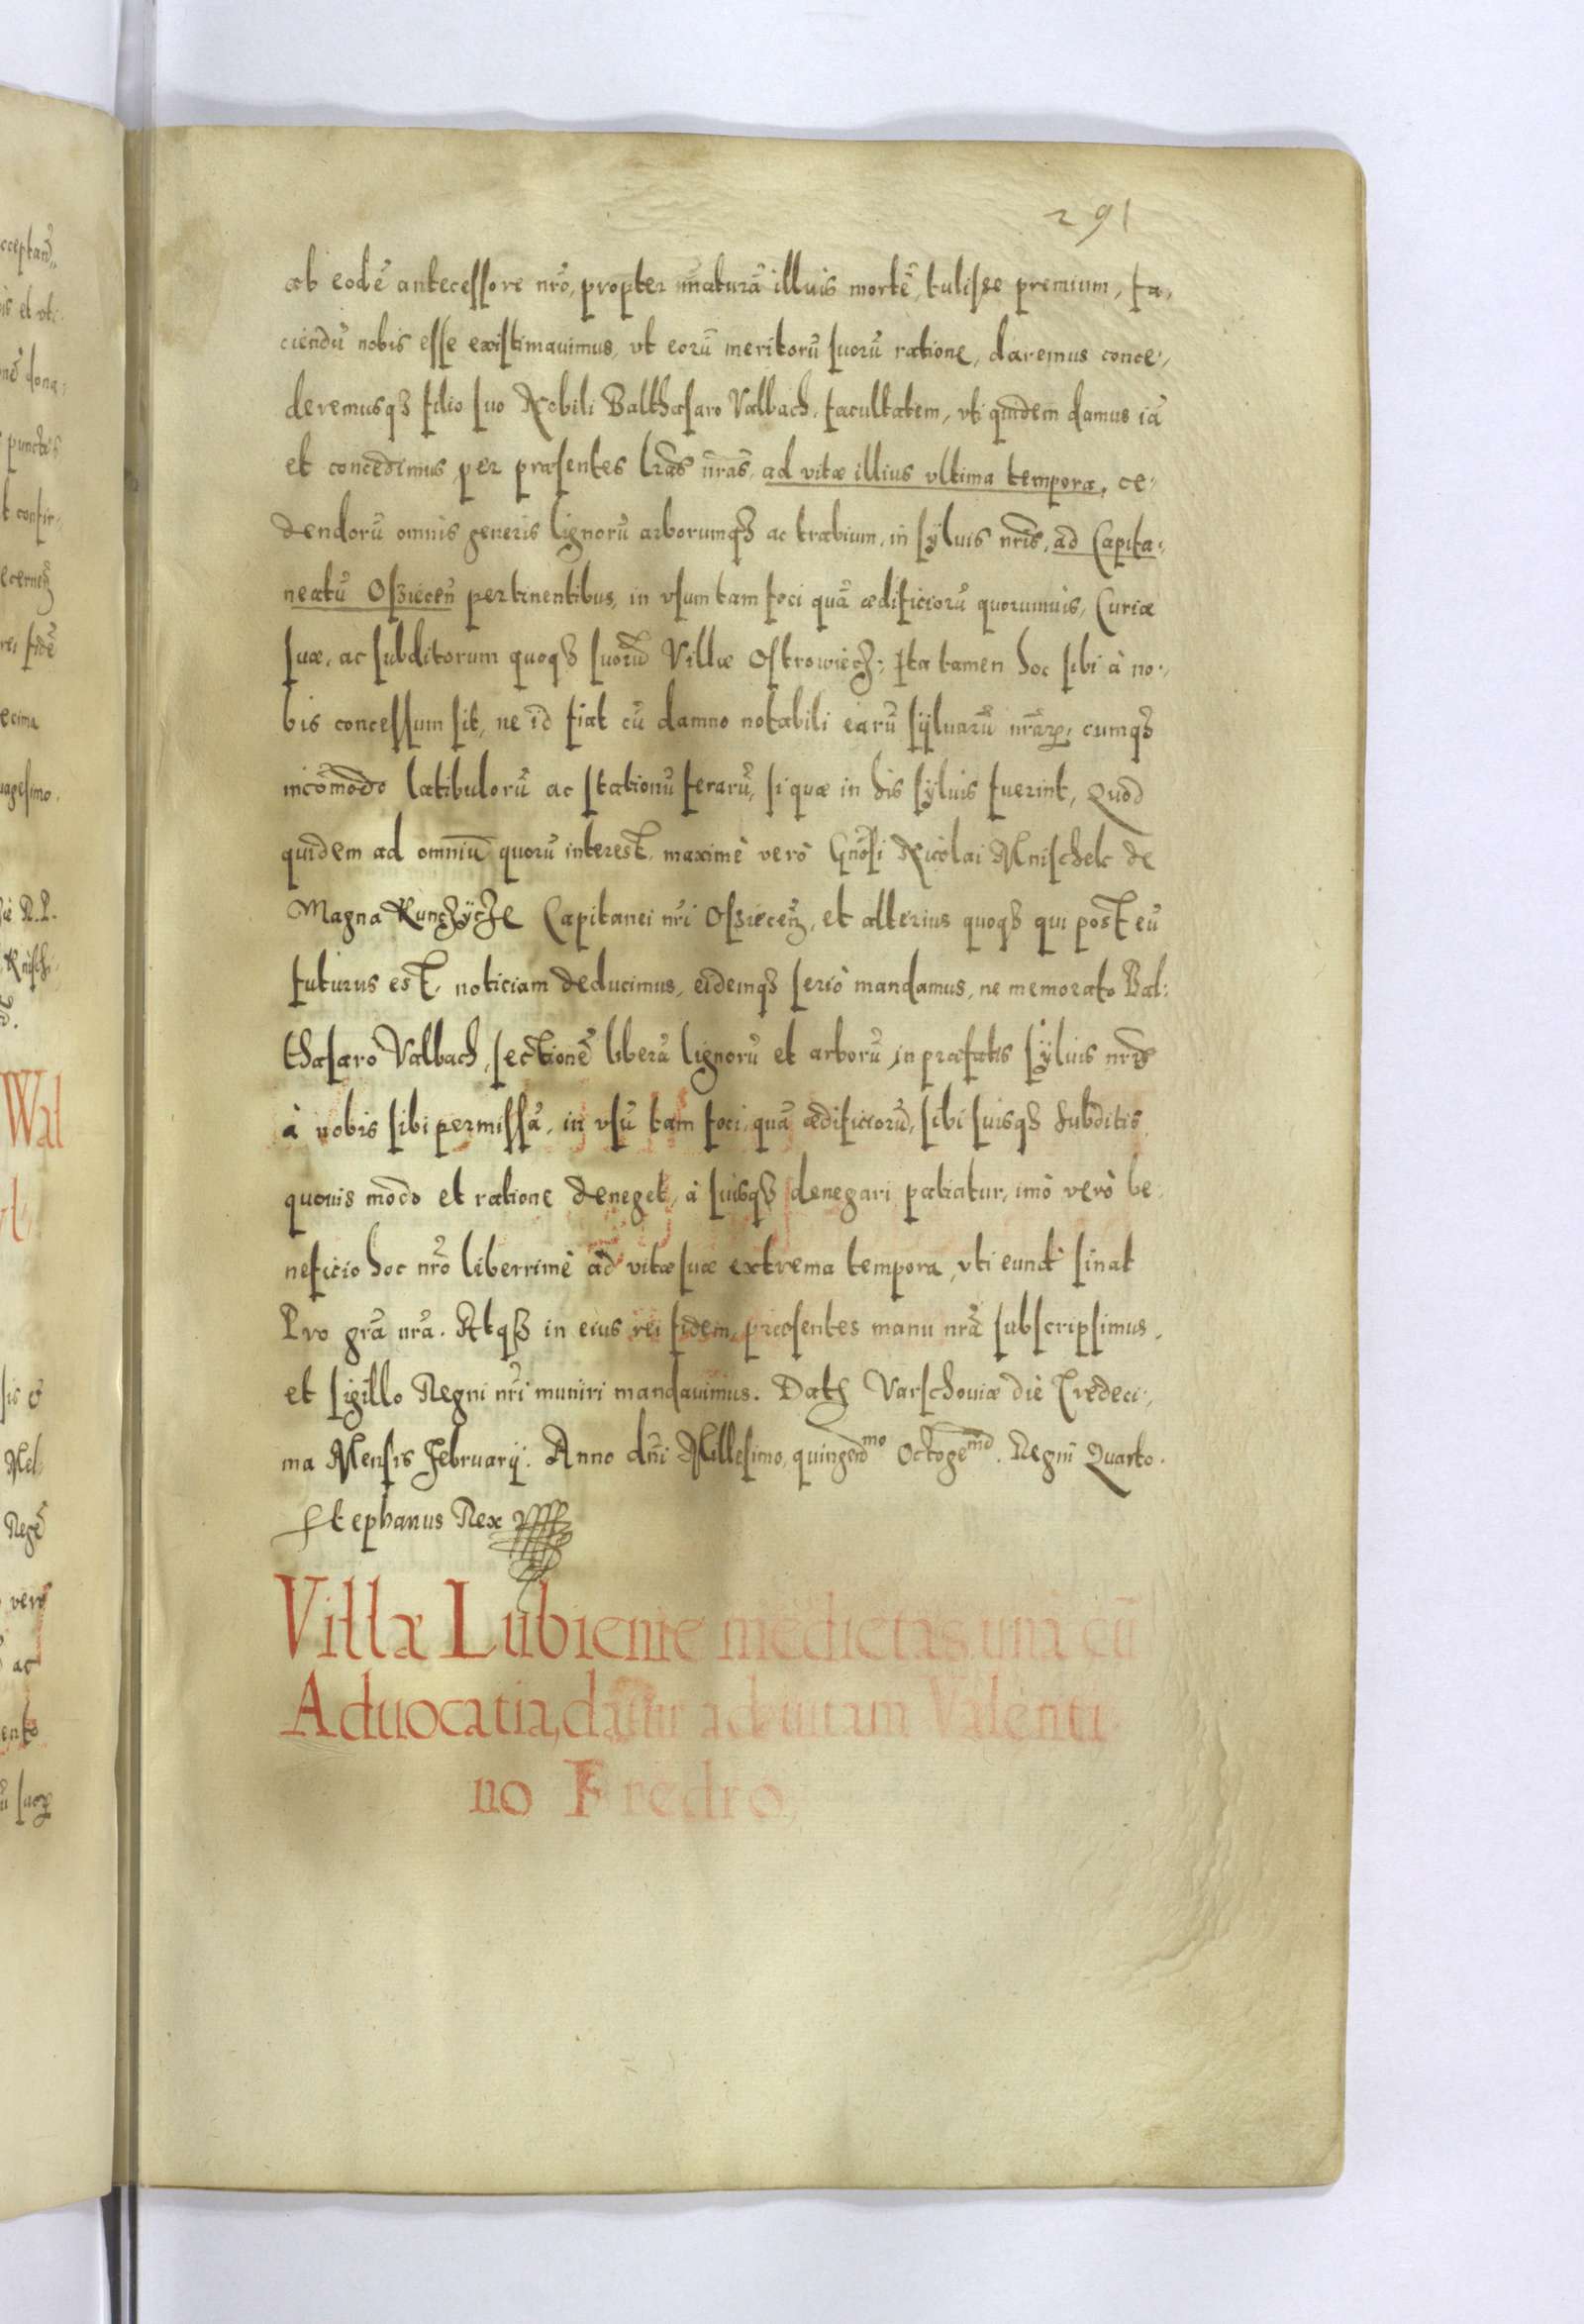 291
ab eodē antecessore nr̄o, propter im̄aturā illius mortē, tulisse premium, fa,
ciendū nobis esse existimauimus, vt eorū meritorū suorū ratione, daremus conce,
deremusqꝫ filio suo Nobili Balthasaro Valbach, facultatem, vti quidem damus iā
et concedimus per præsentes lr̄as nr̄as, ad vitæ illius vltima tempora, ce,
dendorū omnis generis lignorū arborumqꝫ ac trabium, in syluis nr̄is, ad Capita,
neatū Osziecen̄ pertinentibus, in vsum tam foci quā ædificiorū quorumuis, Curiæ
suæ, ac subditorum quoqꝫ suorū Villæ Ostrowiecz; Ita tamen hoc sibi à no,
bis concessum sit, ne id fiat cū damno notabili earū syluarū nr̄aꝝ, cumqꝫ
incōmodo latibulorū ac stationū ferarū, si quæ in his syluis fuerint, Quod
quidem ad omniū quorū interest, maximè verò Gn̄osi Nicolai Mnischek de
Magna Kunczÿcze Capitanei nr̄i Osziecen̄, et alterius quoqꝫ qui post eū
futurus est, noticiam deducimus, eidemqꝫ seriò mandamus, ne memorato Bal,
thasaro Valbach, sectionē liberā lignorū et arborū in præfatis syluis nr̄is
à nobis sibi permissā, in vsū tam foci, quā ædificiorū, sibi suisqꝫ subditis
quouis modo et ratione deneget, à suisqꝫ denegari patiatur, imò verò be,
neficio hoc nr̄o liberrimè ad vitæ suæ extrema tempora, vti eundē sinat
Pro gr̄a nr̄a. Atqꝫ in eius rei fidem, præsentes manu nr̄a subscripsimus,
et sigillo Regni nr̄i muniri mandauimus. Dat Varschouiæ die Tredeci,
ma Mensis Februarij. Anno dn̄i Millesimo, quingenᵐᵒ Octogeᵐᵒ. Regni Quarto.
Stephanus Rex
Villæ Lubienie medietas unà cū
Aduocatia, datur ad uitam Valenti
no Fredro,